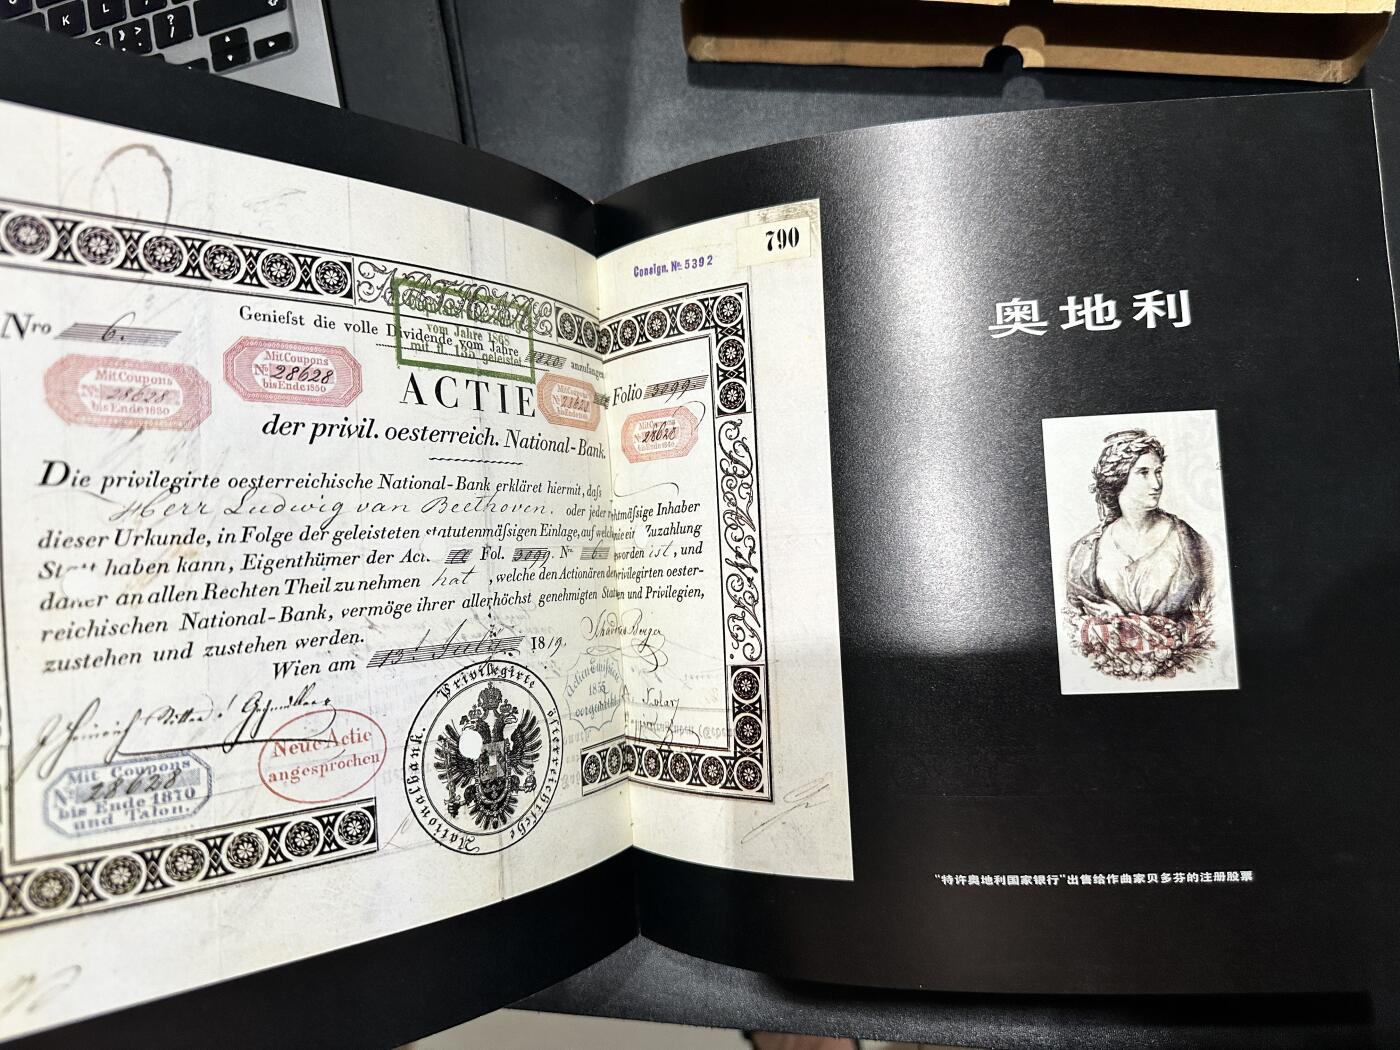 790
Consign. № 5392
Nro 6.
Geniefst die volle Dividende vom Jahre anzufangen
vom Jahre 1868
mit fl. 135 geleistet
Mit Coupons
№ 28628
bis Ende 1850
Mit Coupons
№ 28628
bis Ende 1850
ACTIE
Folio 3099
Mit Coupons
28628
der privil. oesterreich. National-Bank.
Die privilegirte oesterreichische National-Bank erkläret hiermit, dafs
Herr Ludwig van Beethoven. oder jeder rechtmäfsige Inhaber
dieser Urkunde, in Folge der geleisteten statutenmäfsigen Einlage, auf welche nie eine Zuzahlung
Statt haben kann, Eigenthümer der Act. Fol. 3099. Nr. 6. geworden ist, und
daher an allen Rechten Theil zu nehmen hat, welche den Actionären der privilegirten oester-
reichischen National-Bank, vermöge ihrer allerhöchst genehmigten Statuten und Privilegien,
zustehen und zustehen werden.
Wien am 13. July 1819.
Neue Actie
angesprochen
Mit Coupons
№ 28628
bis Ende 1870
und Talon.
Privilegirte österreichische Nationalbank.
奥地利
“特许奥地利国家银行”出售给作曲家贝多芬的注册股票